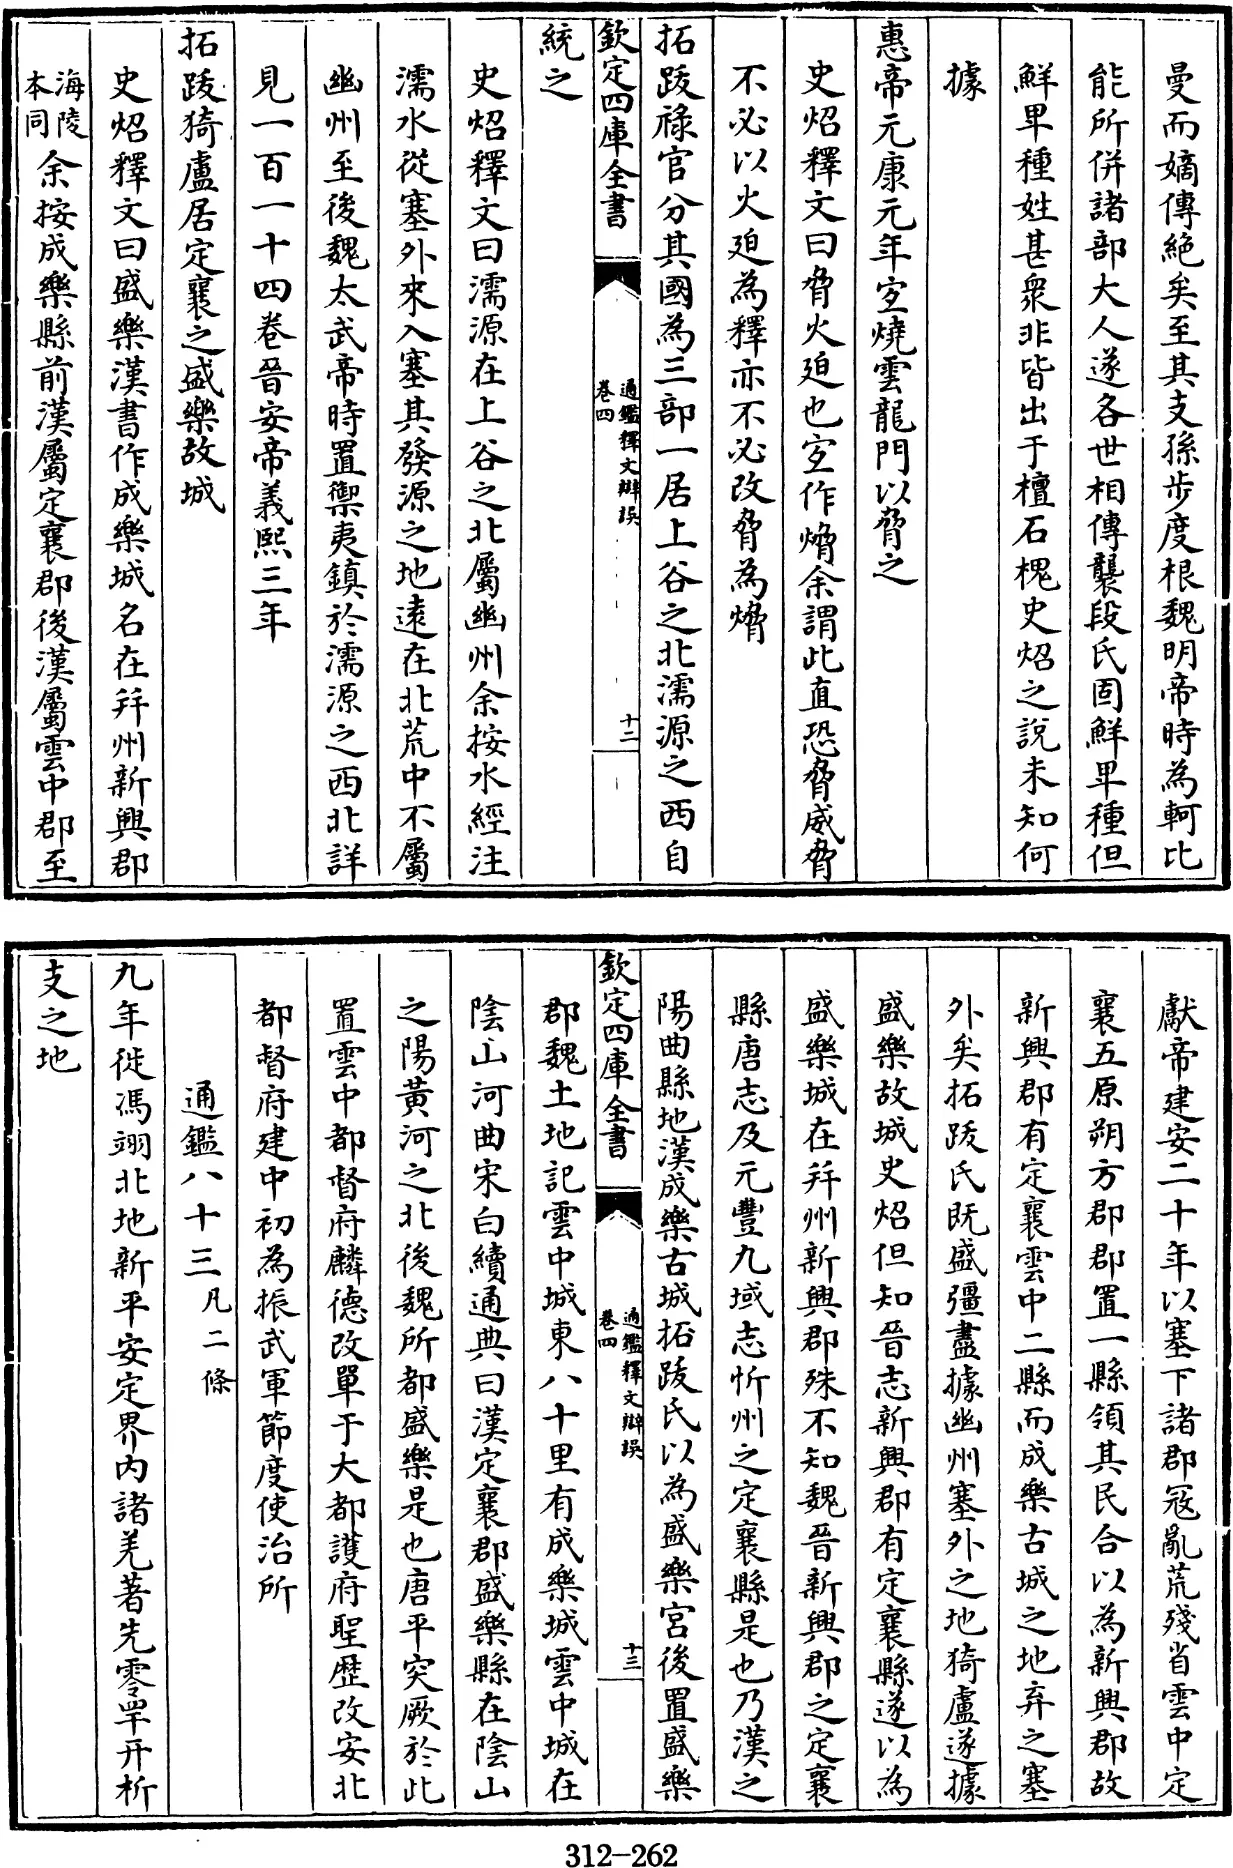 曼而嫡傳絶矣至其支孫步度根魏明帝時為軻比
能所併諸部大人遂各世相傳襲段氏固鮮卑種但
鮮卑種姓甚衆非皆出于檀石槐史炤之說未知何
據
惠帝元康元年宐燒雲龍門以脅之
史炤釋文曰脅火迫也宐作熁余謂此直恐脅威脅
不必以火迫為釋亦不必改脅為熁
拓跋祿官分其國為三部一居上谷之北濡源之西自
欽定四庫全書
通鑑釋文辯誤
卷四
十二
統之
史炤釋文曰濡源在上谷之北屬幽州余按水經注
濡水從塞外來入塞其發源之地遠在北荒中不屬
幽州至後魏太武帝時置禦夷鎮於濡源之西北詳
見一百一十四卷晉安帝義熙三年
拓跋猗盧居定襄之盛樂故城
史炤釋文曰盛樂漢書作成樂城名在并州新興郡
海陵
本同
余按成樂縣前漢屬定襄郡後漢屬雲中郡至
獻帝建安二十年以塞下諸郡冦亂荒殘省雲中定
襄五原朔方郡郡置一縣領其民合以為新興郡故
新興郡有定襄雲中二縣而成樂古城之地弃之塞
外矣拓跋氏既盛彊盡據幽州塞外之地猗盧遂據
盛樂故城史炤但知晉志新興郡有定襄縣遂以為
盛樂城在并州新興郡殊不知魏晉新興郡之定襄
縣唐志及元豐九域志忻州之定襄縣是也乃漢之
陽曲縣地漢成樂古城拓跋氏以為盛樂宮後置盛樂
欽定四庫全書
通鑑釋文辯誤
卷四
十三
郡魏土地記雲中城東八十里有成樂城雲中城在
陰山河曲宋白續通典曰漢定襄郡盛樂縣在陰山
之陽黃河之北後魏所都盛樂是也唐平突厥於此
置雲中都督府麟德改單于大都護府聖歷改安北
都督府建中初為振武軍節度使治所
通鑑八十三凡二條
九年徙馮翊北地新平安定界內諸羌著先零罕幵析
支之地
312-262